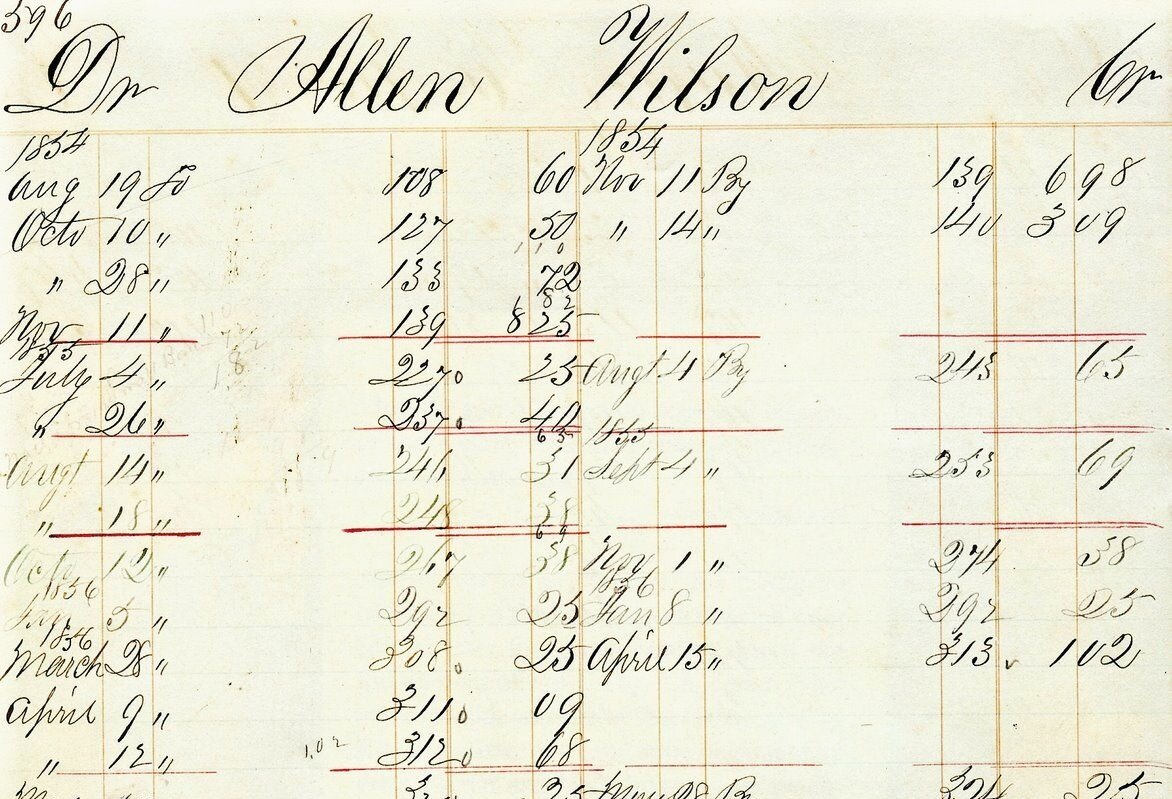 596
Dr Allen Wilson Cr
1854 1854
Aug 19 To 108 60 Nov 11 By 139 6 98
Octo 10 " 127 50 " 14 " 140 3 09
" 28 " 133 72
82
Nov 11 " 139 8 25
1855
July 4 " 227 25 Augt 4 By 243 65
" 26 " 237 40
65 1855
Augt 14 " 246 31 Sept 4 " 253 69
" 18 " 248 38
69
Octo 12 " 267 38 Nov 1 " 274 38
1856 1856
Jan 5 " 292 25 Jan 8 " 292 25
1856
March 28 " 308 25 April 15 " 313 1 02
April 9 " 311 09
" 12 " 1.02 312 68